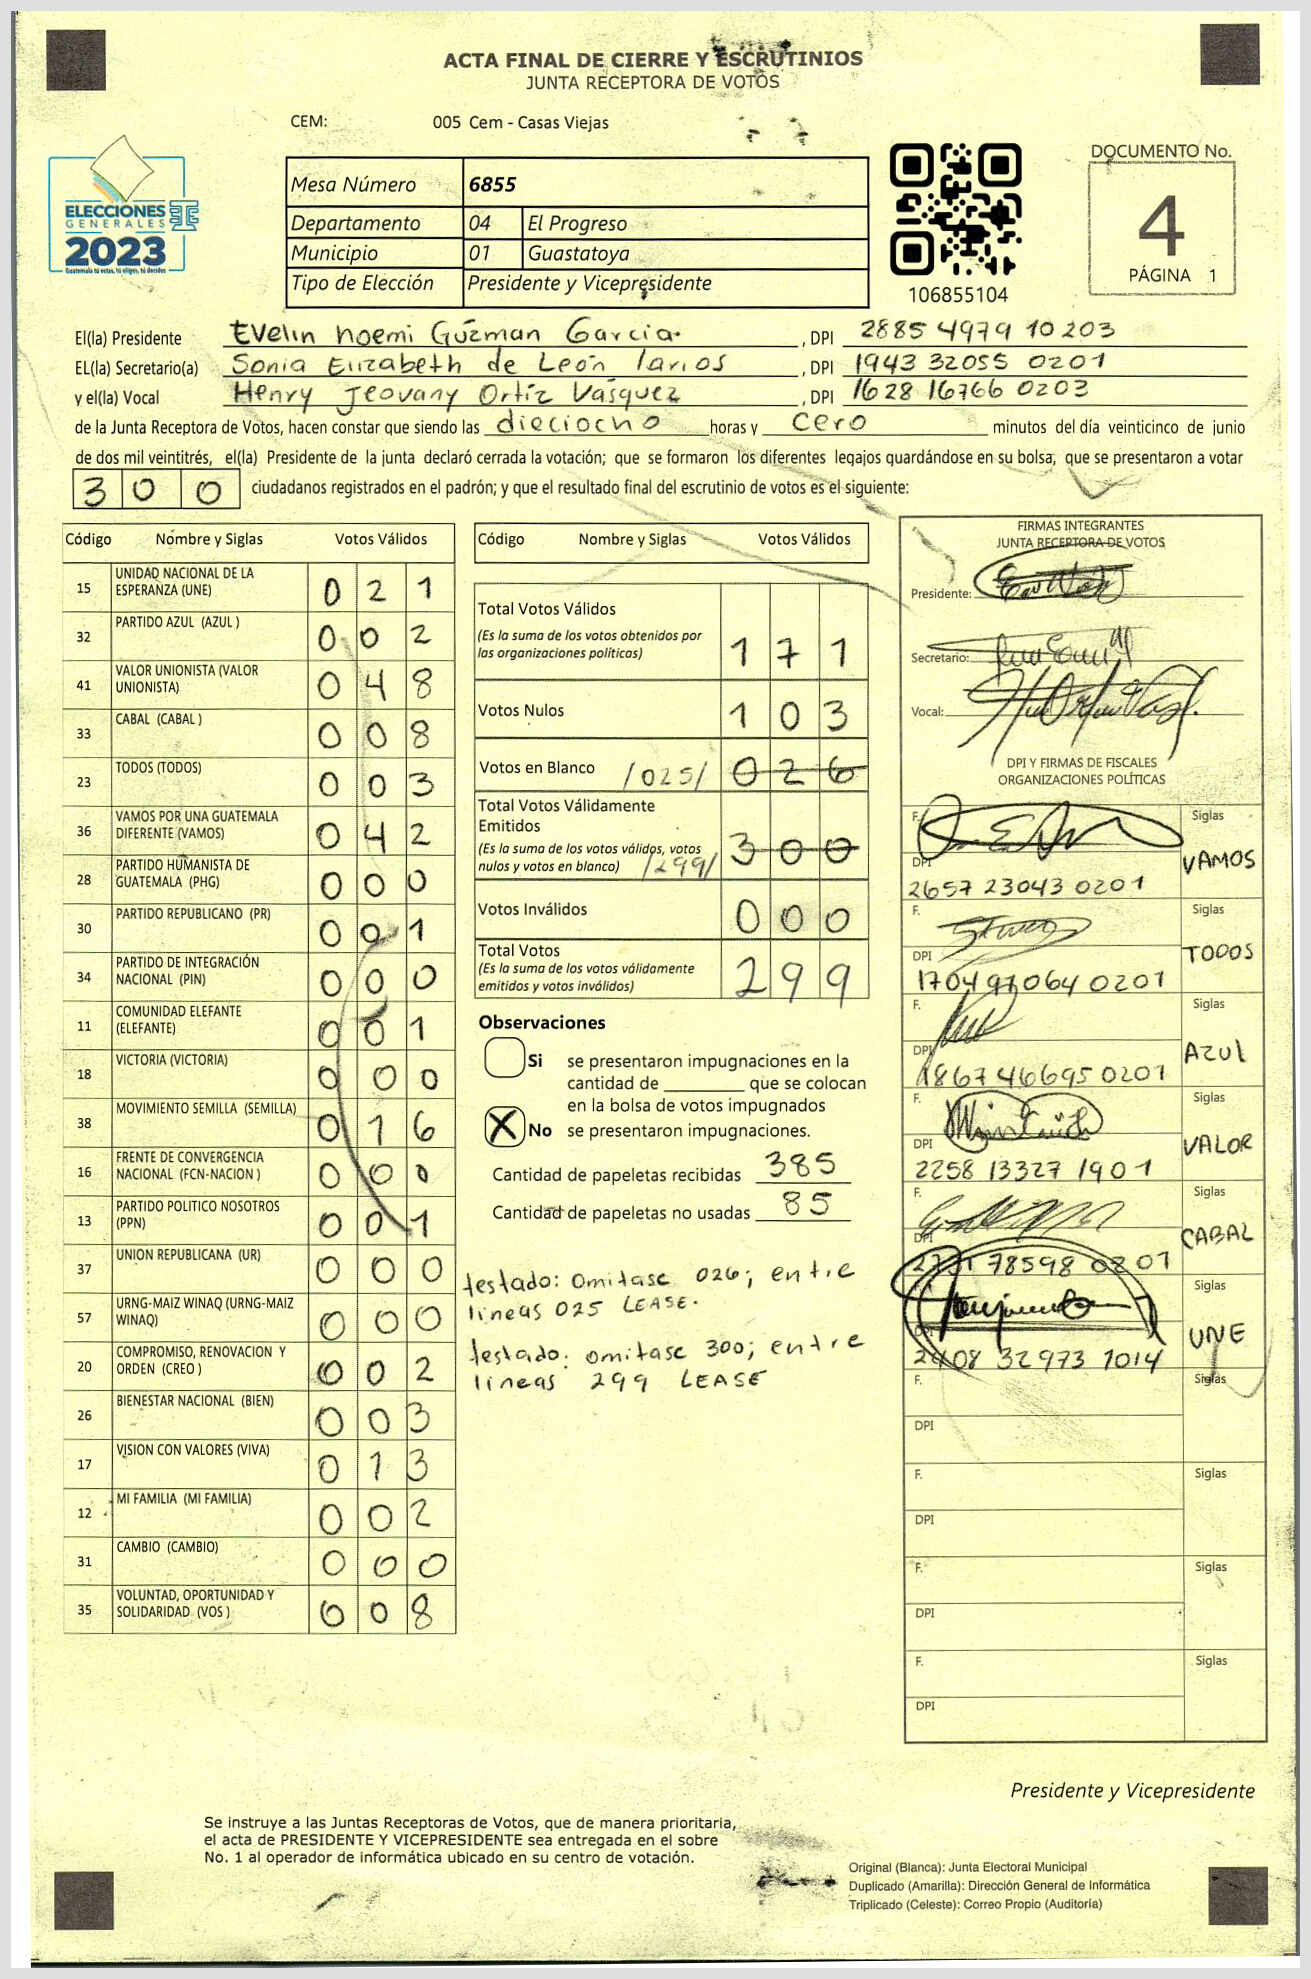 ACTA FINAL DE CIERRE Y ESCRUTINIOS
JUNTA RECEPTORA DE VOTOS
CEM: 005 Cem - Casas Viejas
ELECCIONES
GENERALES
2023
Guatemala tú votas, tú eliges, tú decides
Mesa Número 6855
Departamento 04 El Progreso
Municipio 01 Guastatoya
Tipo de Elección Presidente y Vicepresidente
106855104
DOCUMENTO No.
4
PÁGINA 1
El(la) Presidente Evelin Noemi Gúzman Garcia. , DPI 2885 4979 10203
EL(la) Secretario(a) Sonia Elizabeth de León larios , DPI 1943 32055 0201
y el(la) Vocal Henry Jeovany Ortíz Vásquez , DPI 1628 16766 0203
de la Junta Receptora de Votos, hacen constar que siendo las dieciocho horas y cero minutos del día veinticinco de junio
de dos mil veintitrés, el(la) Presidente de la junta declaró cerrada la votación; que se formaron los diferentes legajos guardándose en su bolsa, que se presentaron a votar
300 ciudadanos registrados en el padrón; y que el resultado final del escrutinio de votos es el siguiente:
Código Nombre y Siglas Votos Válidos
15 UNIDAD NACIONAL DE LA ESPERANZA (UNE) 021
32 PARTIDO AZUL (AZUL ) 002
41 VALOR UNIONISTA (VALOR UNIONISTA) 048
33 CABAL (CABAL ) 008
23 TODOS (TODOS) 003
36 VAMOS POR UNA GUATEMALA DIFERENTE (VAMOS) 042
28 PARTIDO HUMANISTA DE GUATEMALA (PHG) 000
30 PARTIDO REPUBLICANO (PR) 001
34 PARTIDO DE INTEGRACIÓN NACIONAL (PIN) 000
11 COMUNIDAD ELEFANTE (ELEFANTE) 001
18 VICTORIA (VICTORIA) 000
38 MOVIMIENTO SEMILLA (SEMILLA) 016
16 FRENTE DE CONVERGENCIA NACIONAL (FCN-NACION ) 000
13 PARTIDO POLITICO NOSOTROS (PPN) 001
37 UNION REPUBLICANA (UR) 000
57 URNG-MAIZ WINAQ (URNG-MAIZ WINAQ) 000
20 COMPROMISO, RENOVACION Y ORDEN (CREO ) 002
26 BIENESTAR NACIONAL (BIEN) 003
17 VISION CON VALORES (VIVA) 013
12 MI FAMILIA (MI FAMILIA) 002
31 CAMBIO (CAMBIO) 000
35 VOLUNTAD, OPORTUNIDAD Y SOLIDARIDAD (VOS ) 008
Código Nombre y Siglas Votos Válidos
Total Votos Válidos
(Es la suma de los votos obtenidos por
las organizaciones políticas) 171
Votos Nulos 103
Votos en Blanco /025/ 026
Total Votos Válidamente
Emitidos
(Es la suma de los votos válidos, votos
nulos y votos en blanco) /299/ 300
Votos Inválidos 000
Total Votos
(Es la suma de los votos válidamente
emitidos y votos inválidos) 299
Observaciones
Si se presentaron impugnaciones en la
cantidad de ________ que se colocan
en la bolsa de votos impugnados
X No se presentaron impugnaciones.
Cantidad de papeletas recibidas 385
Cantidad de papeletas no usadas 85
testado: omitase 026; entre
lineas 025 LEASE.
testado: omitase 300; entre
lineas 299 LEASE
FIRMAS INTEGRANTES
JUNTA RECEPTORA DE VOTOS
Presidente:
Secretario:
Vocal:
DPI Y FIRMAS DE FISCALES
ORGANIZACIONES POLÍTICAS
F. Siglas
DPI VAMOS
2657 23043 0201
F. Siglas
DPI TODOS
1704 97064 0201
F. Siglas
DPI AZUl
1867 46695 0201
F. Siglas
DPI VALOR
2258 13327 1901
F. Siglas
DPI CABAL
78598 0201
Siglas
DPI UNE
2408 32973 1014
F. Siglas
DPI
F. Siglas
DPI
F. Siglas
DPI
F. Siglas
DPI
Presidente y Vicepresidente
Se instruye a las Juntas Receptoras de Votos, que de manera prioritaria,
el acta de PRESIDENTE Y VICEPRESIDENTE sea entregada en el sobre
No. 1 al operador de informática ubicado en su centro de votación.
Original (Blanca): Junta Electoral Municipal
Duplicado (Amarilla): Dirección General de Informática
Triplicado (Celeste): Correo Propio (Auditoría)